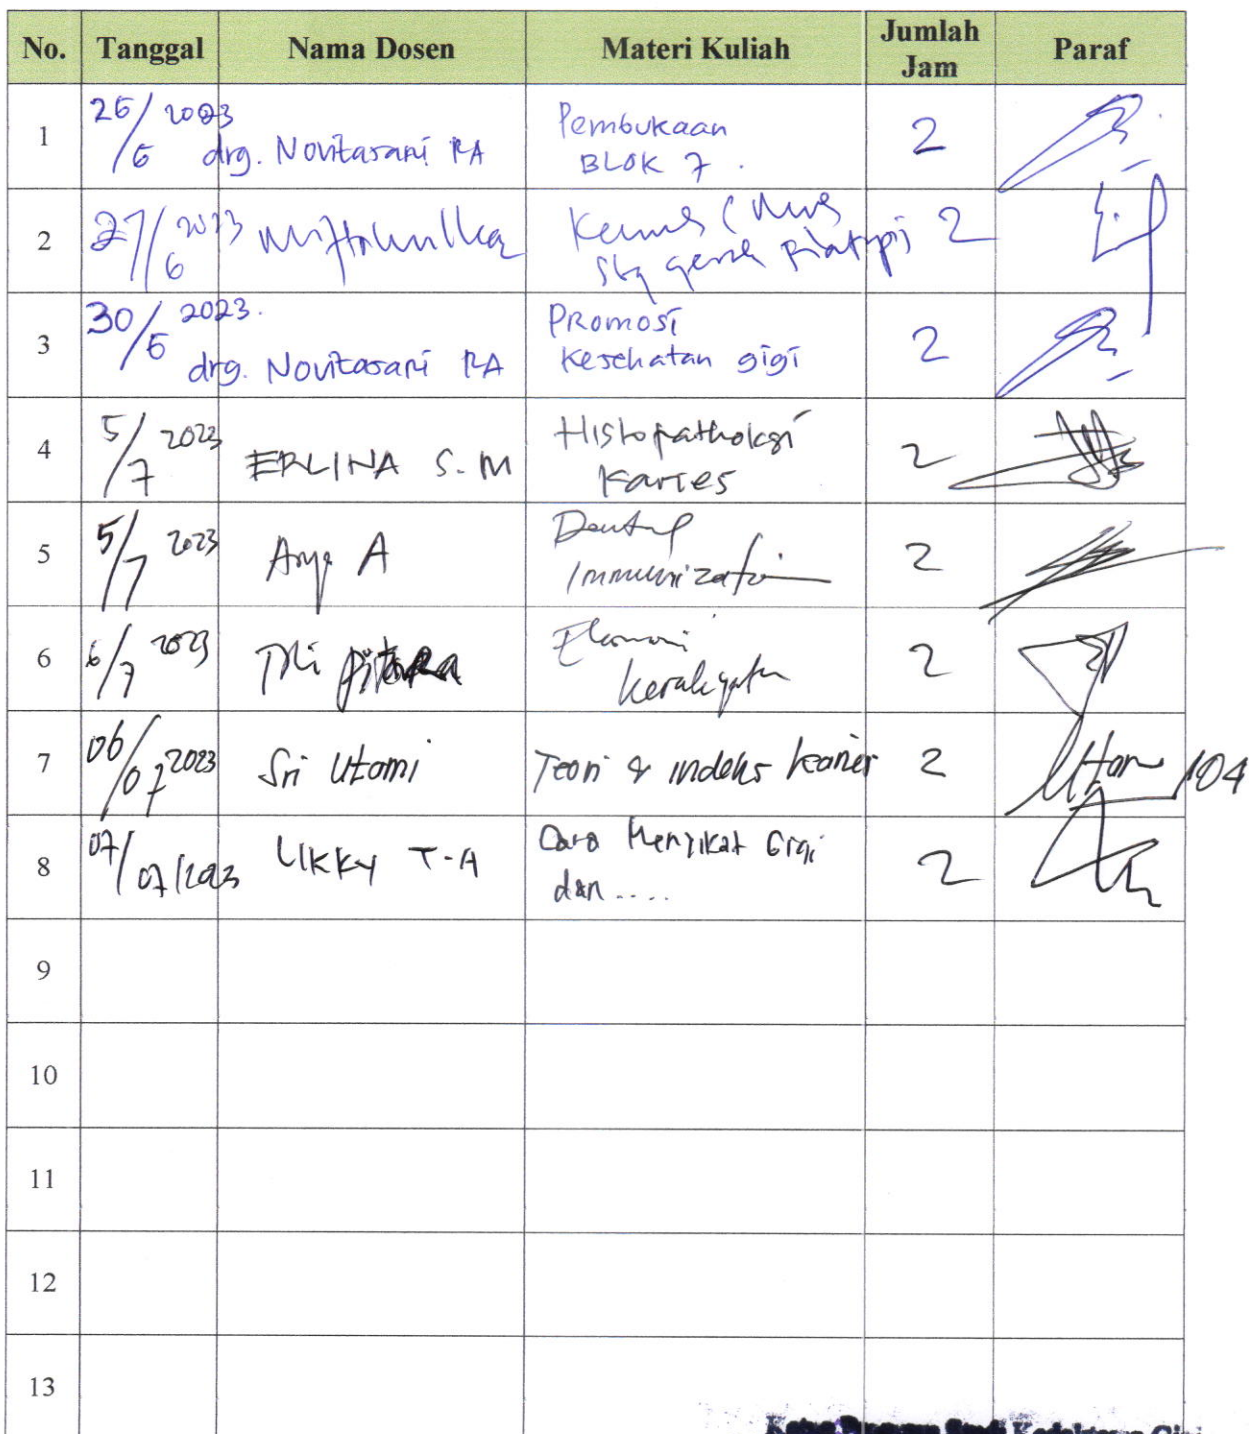 No. Tanggal Nama Dosen Materi Kuliah Jumlah Jam Paraf
1 26/6 2023 drg. Novitasari RA Pembukaan BLOK 7. 2
2 27/6 2023 2
3 30/6 2023. drg. Novitasari RA Promosi Kesehatan gigi 2
4 5/7 2023 ERLINA S.M Histopathologi Karies 2
5 5/7 2023 Arya A Dental Immunization 2
6 6/7 2023 Tri 2
7 06/07 2023 Sri Utami Teori & indeks karies 2
8 07/07/2023 UKKY T-A Cara Menyikat Gigi dan .... 2
9
10
11
12
13
Kedokteran Gigi